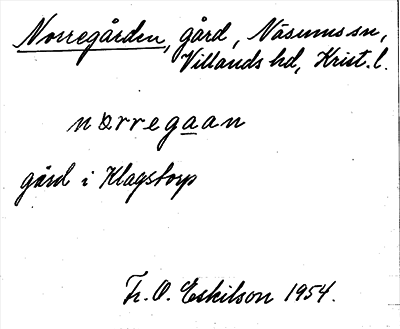 Norregården, gård, Näsums sn,
Villands hd, Krist. l.
nørregaan
gård i Klagstorp
Fr. O. Eskilson 1954.